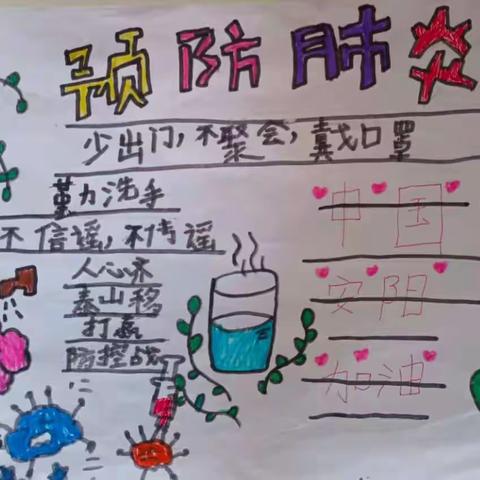 预防肺炎
少出门,不聚会,戴口罩
勤洗手
不信谣,不传谣
人心齐
泰山移
打赢
防控战
中国
安阳
加油